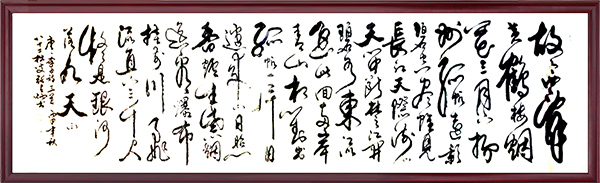 故人西辞
黄鹤楼烟
花三月下扬
州孤帆远影
碧空尽唯见
长江天际流
天门中断楚江开
碧水东流
至此回两岸
青山相对出
孤帆一片日
边来日照
香炉生紫烟
遥看瀑布
挂前川飞
流直下三千尺
疑是银河
落九天
唐李白诗三首